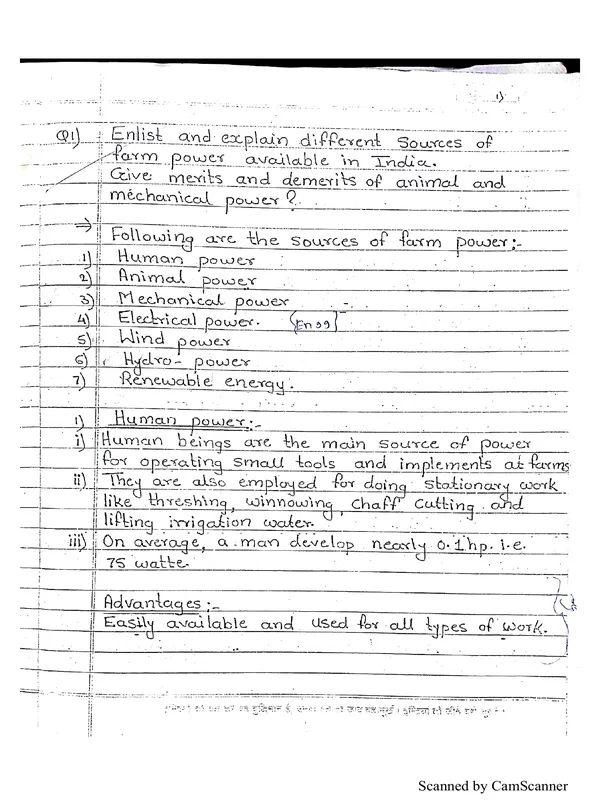 1)
Q1) Enlist and explain different Sources of
farm power available in India.
Give merits and demerits of animal and
mechanical power?
→ Following are the sources of farm power:-
1) Human power
2) Animal power
3) Mechanical power
4) Electrical power.
5) Wind power
6) Hydro-power
7) Renewable energy.
1) Human power:-
i) Human beings are the main source of power
for operating small tools and implements at farms
ii) They are also employed for doing stationary work
like threshing, winnowing, chaff cutting and
lifting irrigation water.
iii) On average, a man develop nearly 0.1hp. i.e.
75 watte.
Advantages:-
Easily available and used for all types of work.
Scanned by CamScanner